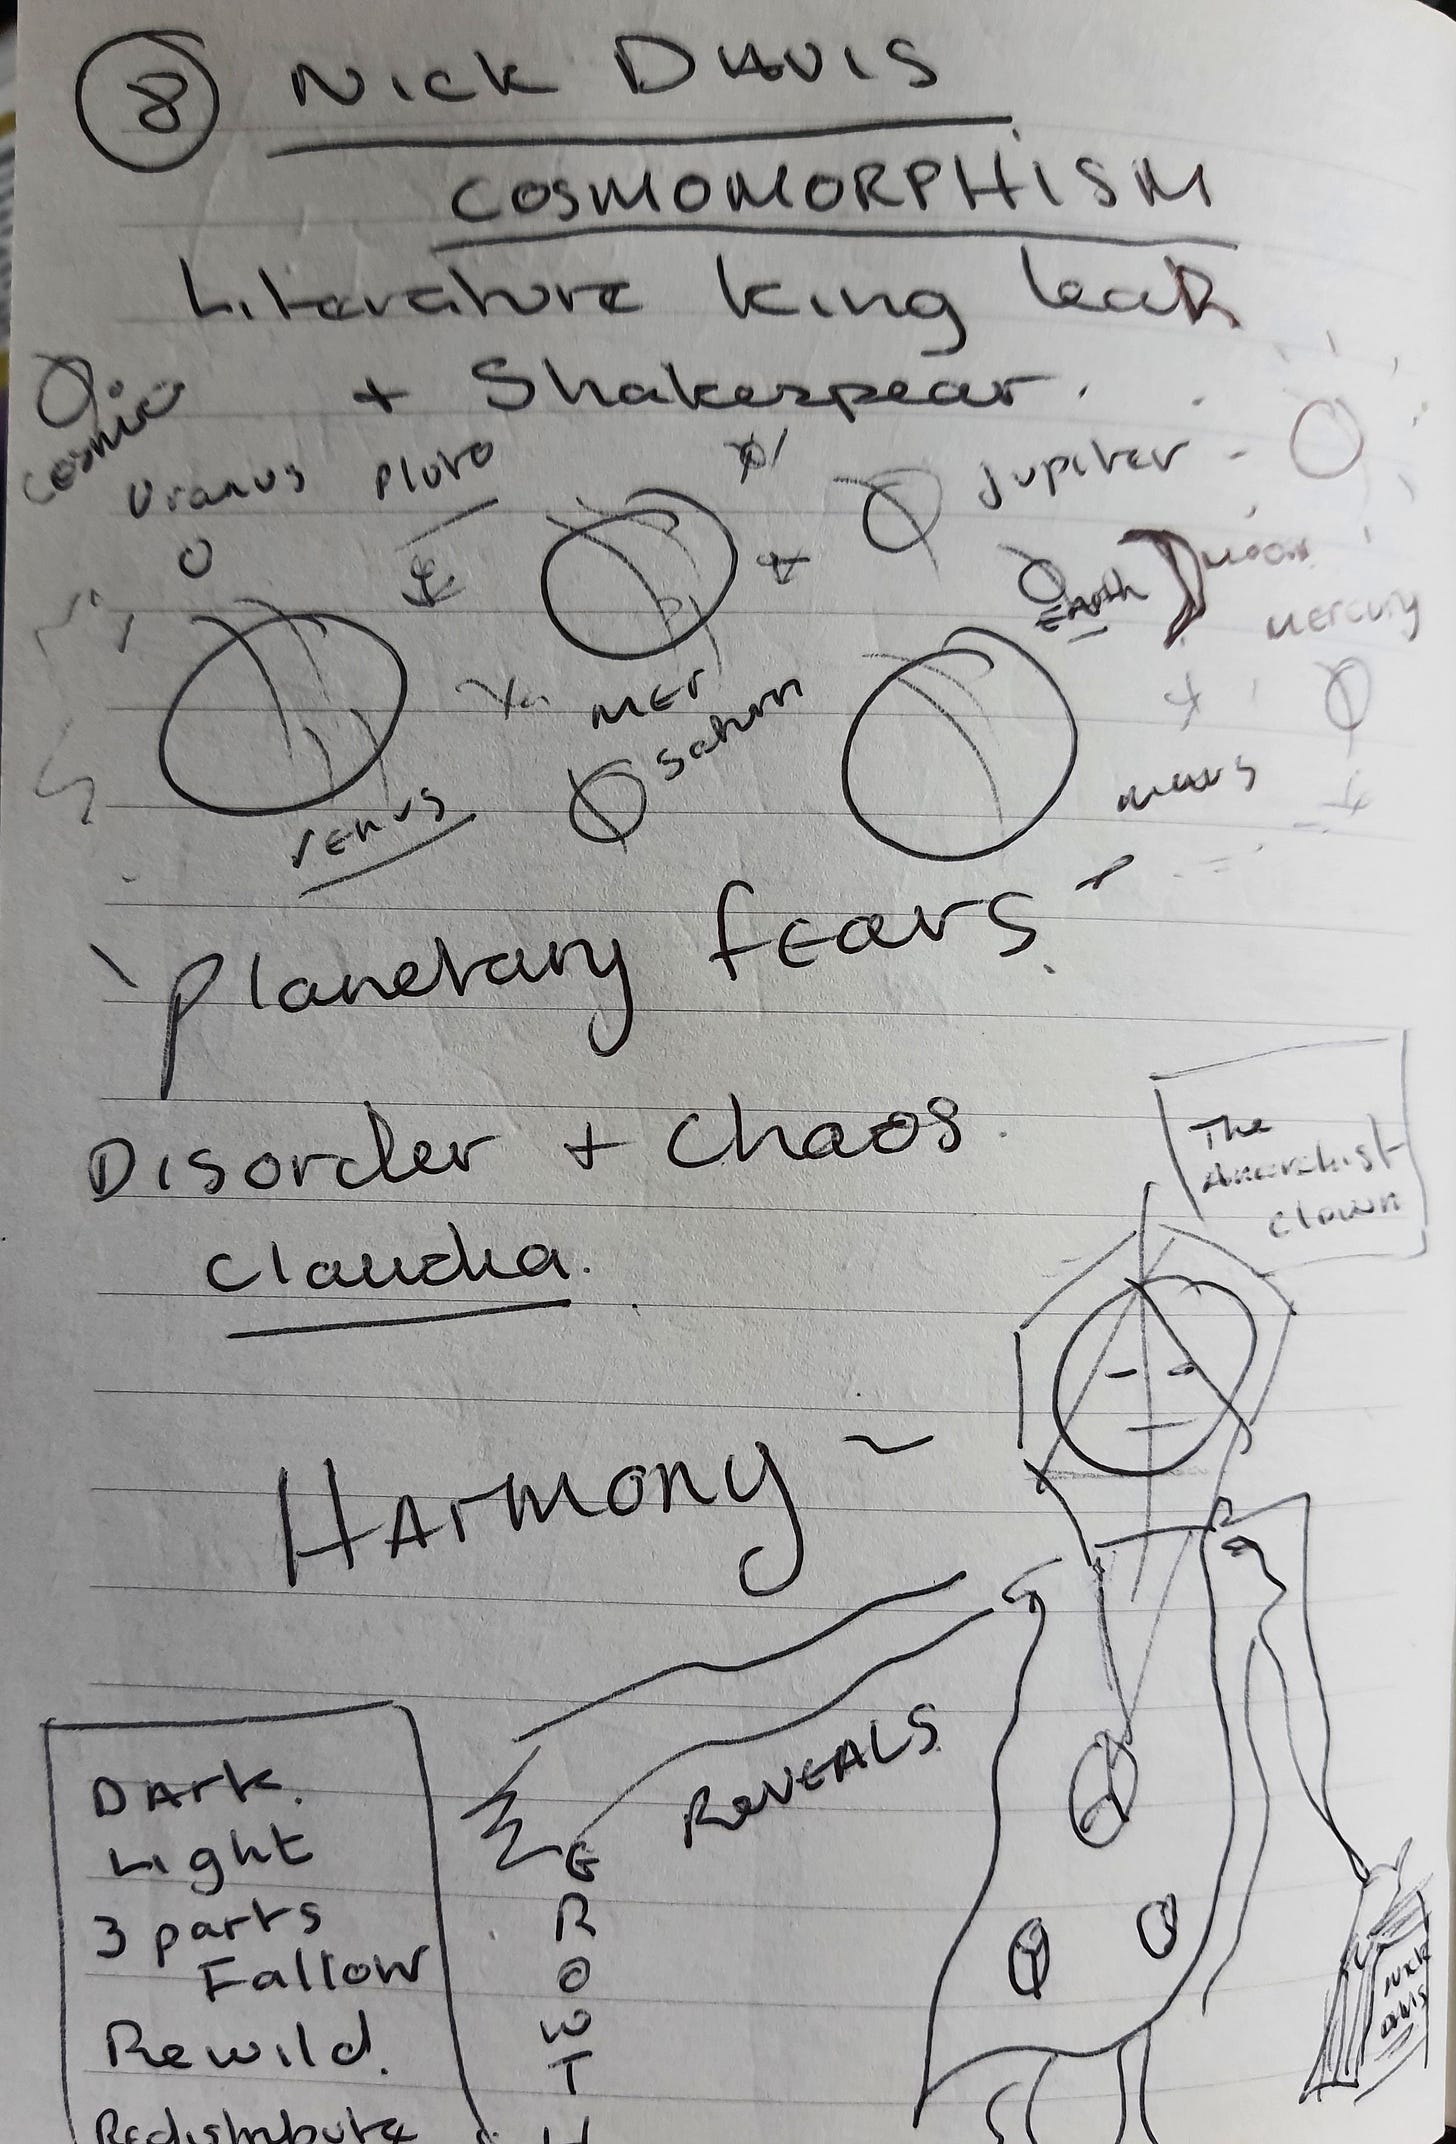 8 Nick DAVIS
COSMOMORPHISM
Literature King Lear
+ Shakespear.
Cosmic
Uranus Pluto
Jupiter -
EARTH Moon
Mercury
MER
Saturn
Venus
Mars
'Planetary fears'
Disorder + Chaos.
Claudia.
The
Anarchist
Clown
HArmony ~
REVEALS
DArk.
Light
3 parts
Fallow
Rewild.
Redistribute
G
R
O
W
T
H
Nick
Davis